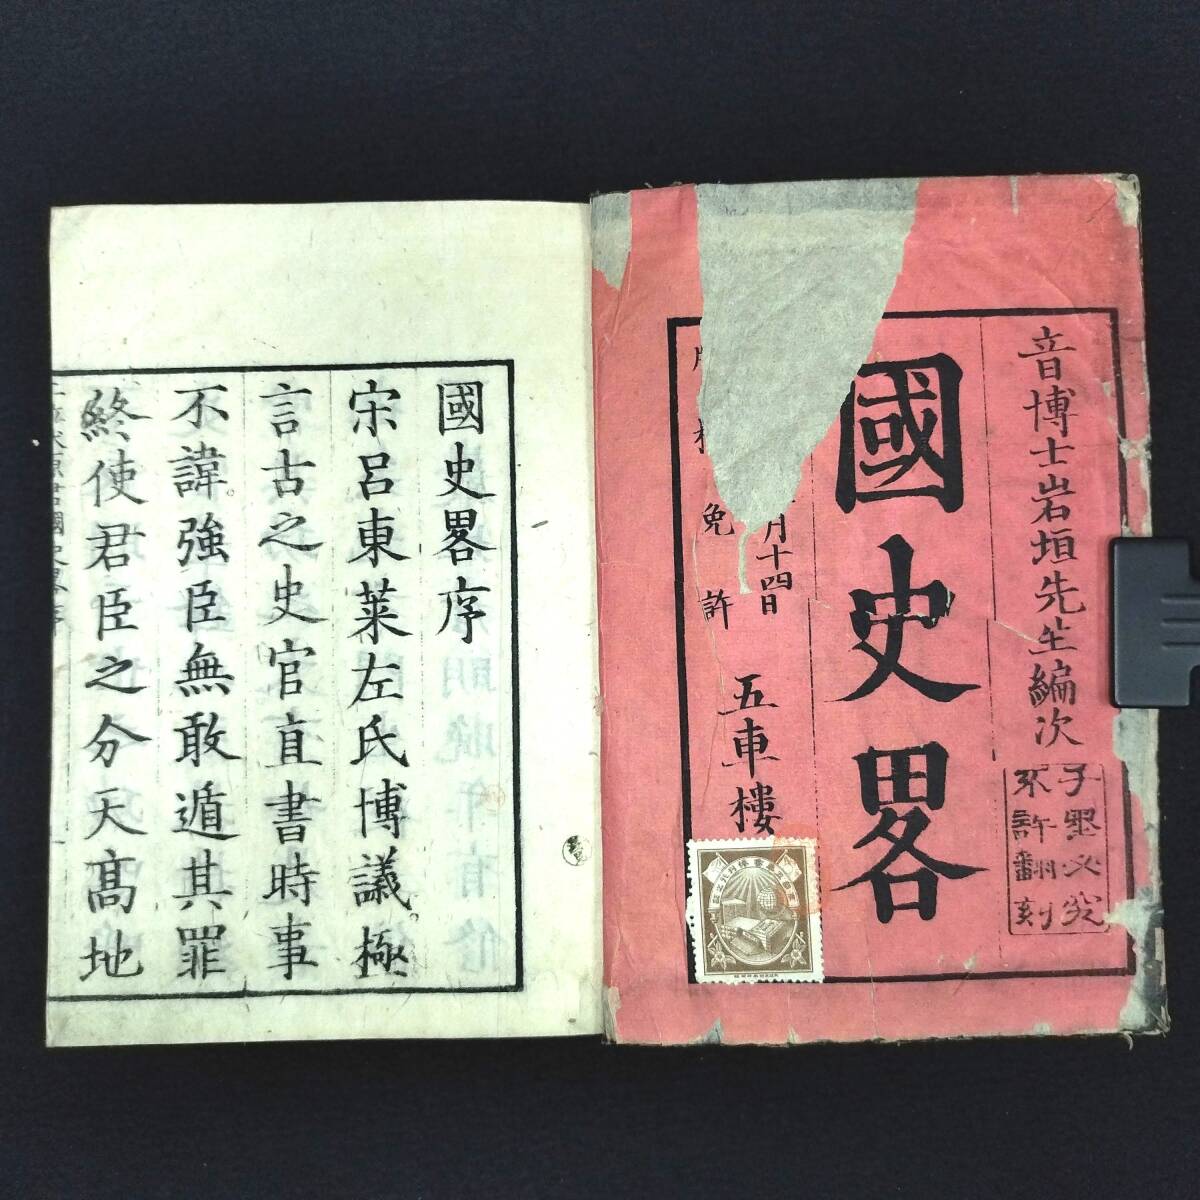 音博士岩垣先生編次
不許翻刻
國史畧
月十四日
免許
五車樓
國史畧序
宋呂東萊左氏博議極
言古之史官直書時事
不諱強臣無敢遁其罪
終使君臣之分天高地